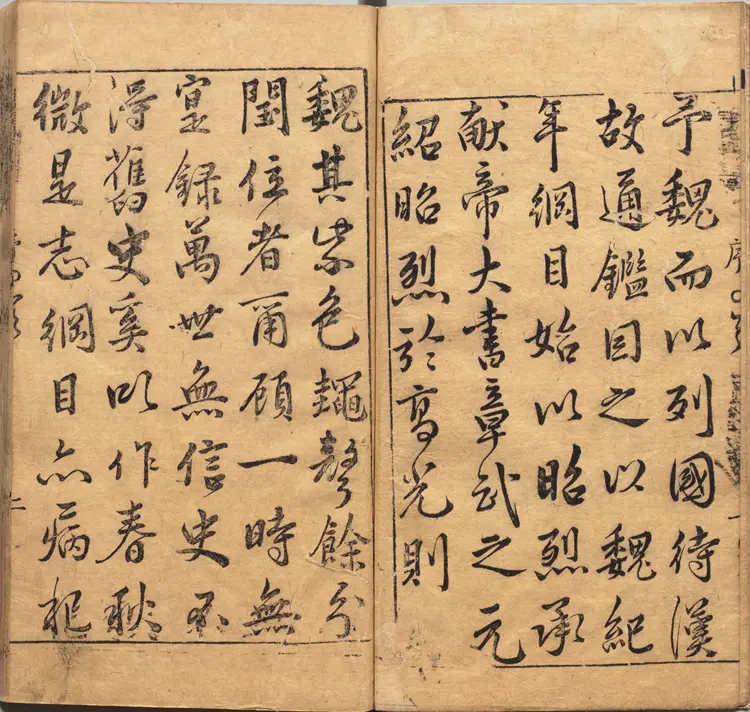 予魏而以列國待漢
故通鑑因之以魏紀
年綱目始以昭烈承
献帝大書章武之元
紹昭烈於高光則
魏其紫色䵷聲餘分
閏位者爾顧一時無
寔録萬世無信史不
得舊史奚以作春秋
微是志綱目亦病
序
二